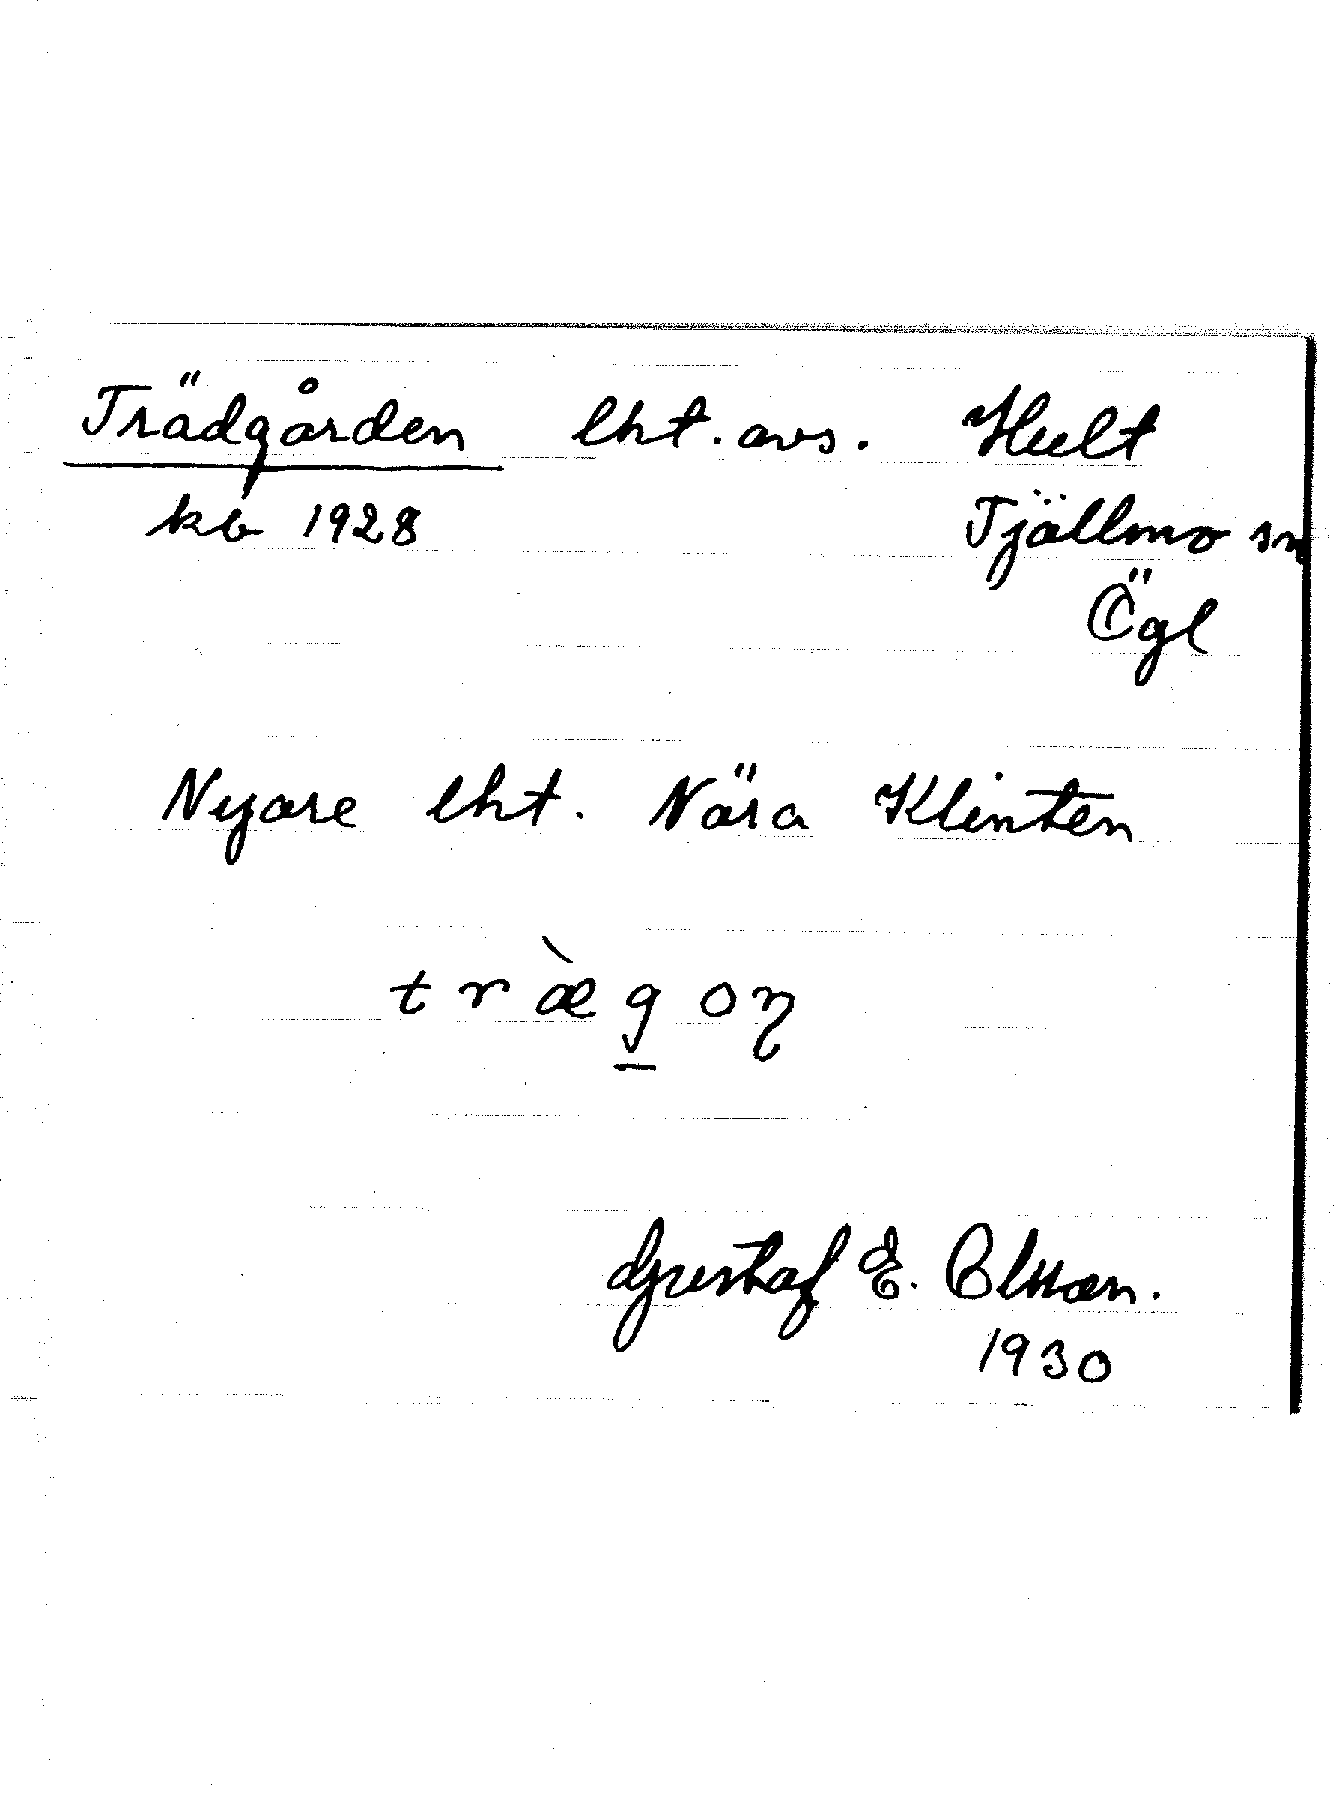 Trädgården lht. avs. Hult
kb 1928 Tjällmo sn
Ögl
Nyare lht. Nära Klinten
træ̀g̲oɳ
Gustaf E. Olsson.
1930